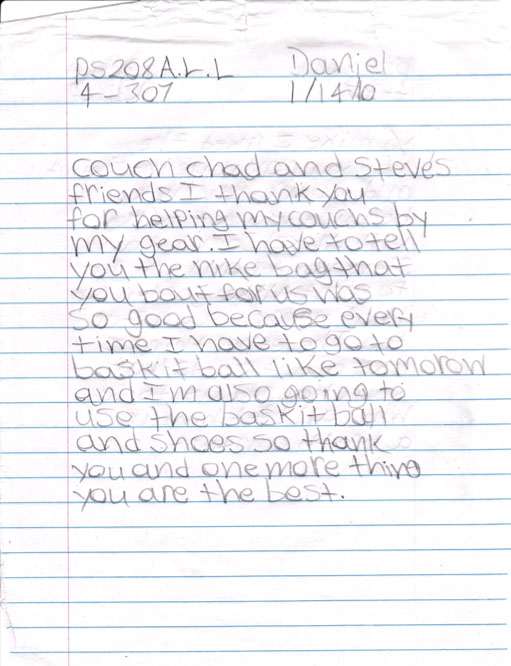 PS208A.L.L Daniel
4-307 1/14/10
couch chad and steves
friends I thank you
for helping my couchs by
my gear. I have to tell
you the nike bag that
you bout for us was
so good because every
time I have to go to
baskit ball like tomorow
and I'm also going to
use the baskit ball
and shoes so thank
you and one more thing
you are the best.